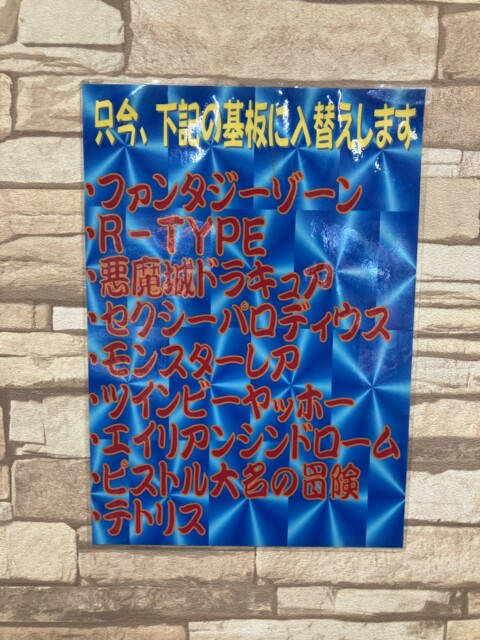 只今、下記の基板に入替えします
・ファンタジーゾーン
・R-TYPE
・悪魔城ドラキュア
・セクシーパロディウス
・モンスターレア
・ツインビーヤッホー
・エイリアンシンドローム
・ピストル大名の冒険
・テトリス